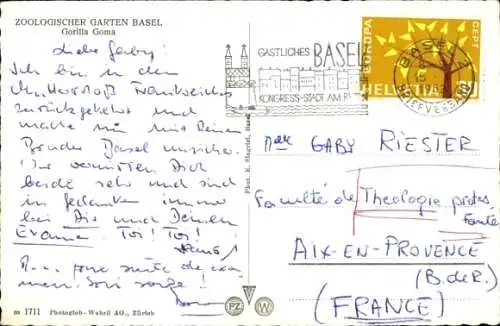 ZOOLOGISCHER GARTEN BASEL
Gorilla Goma
Liebe Gaby!
Ich bin in den
zurückgekehrt und
mache nun mit Deinem
Bruder Basel unsicher.
Wir vermissen Dich
beide sehr und sind
in Gedanken immer
bei Dir und Deinem
Examen. Toi! Toi!
m 1711 Photoglob-Wehrli AG., Zürich
Phot. E. Siegrist, Basel
PZ W
GASTLICHES BASEL
KONGRESS-STADT AM
EUROPA CEPT
HELVETIA
BASEL
BRIEFVERSAND
GABY RIESTER
Faculté de Théologie protes
tante
AIX-EN-PROVENCE
(B.de R.)
(FRANCE)